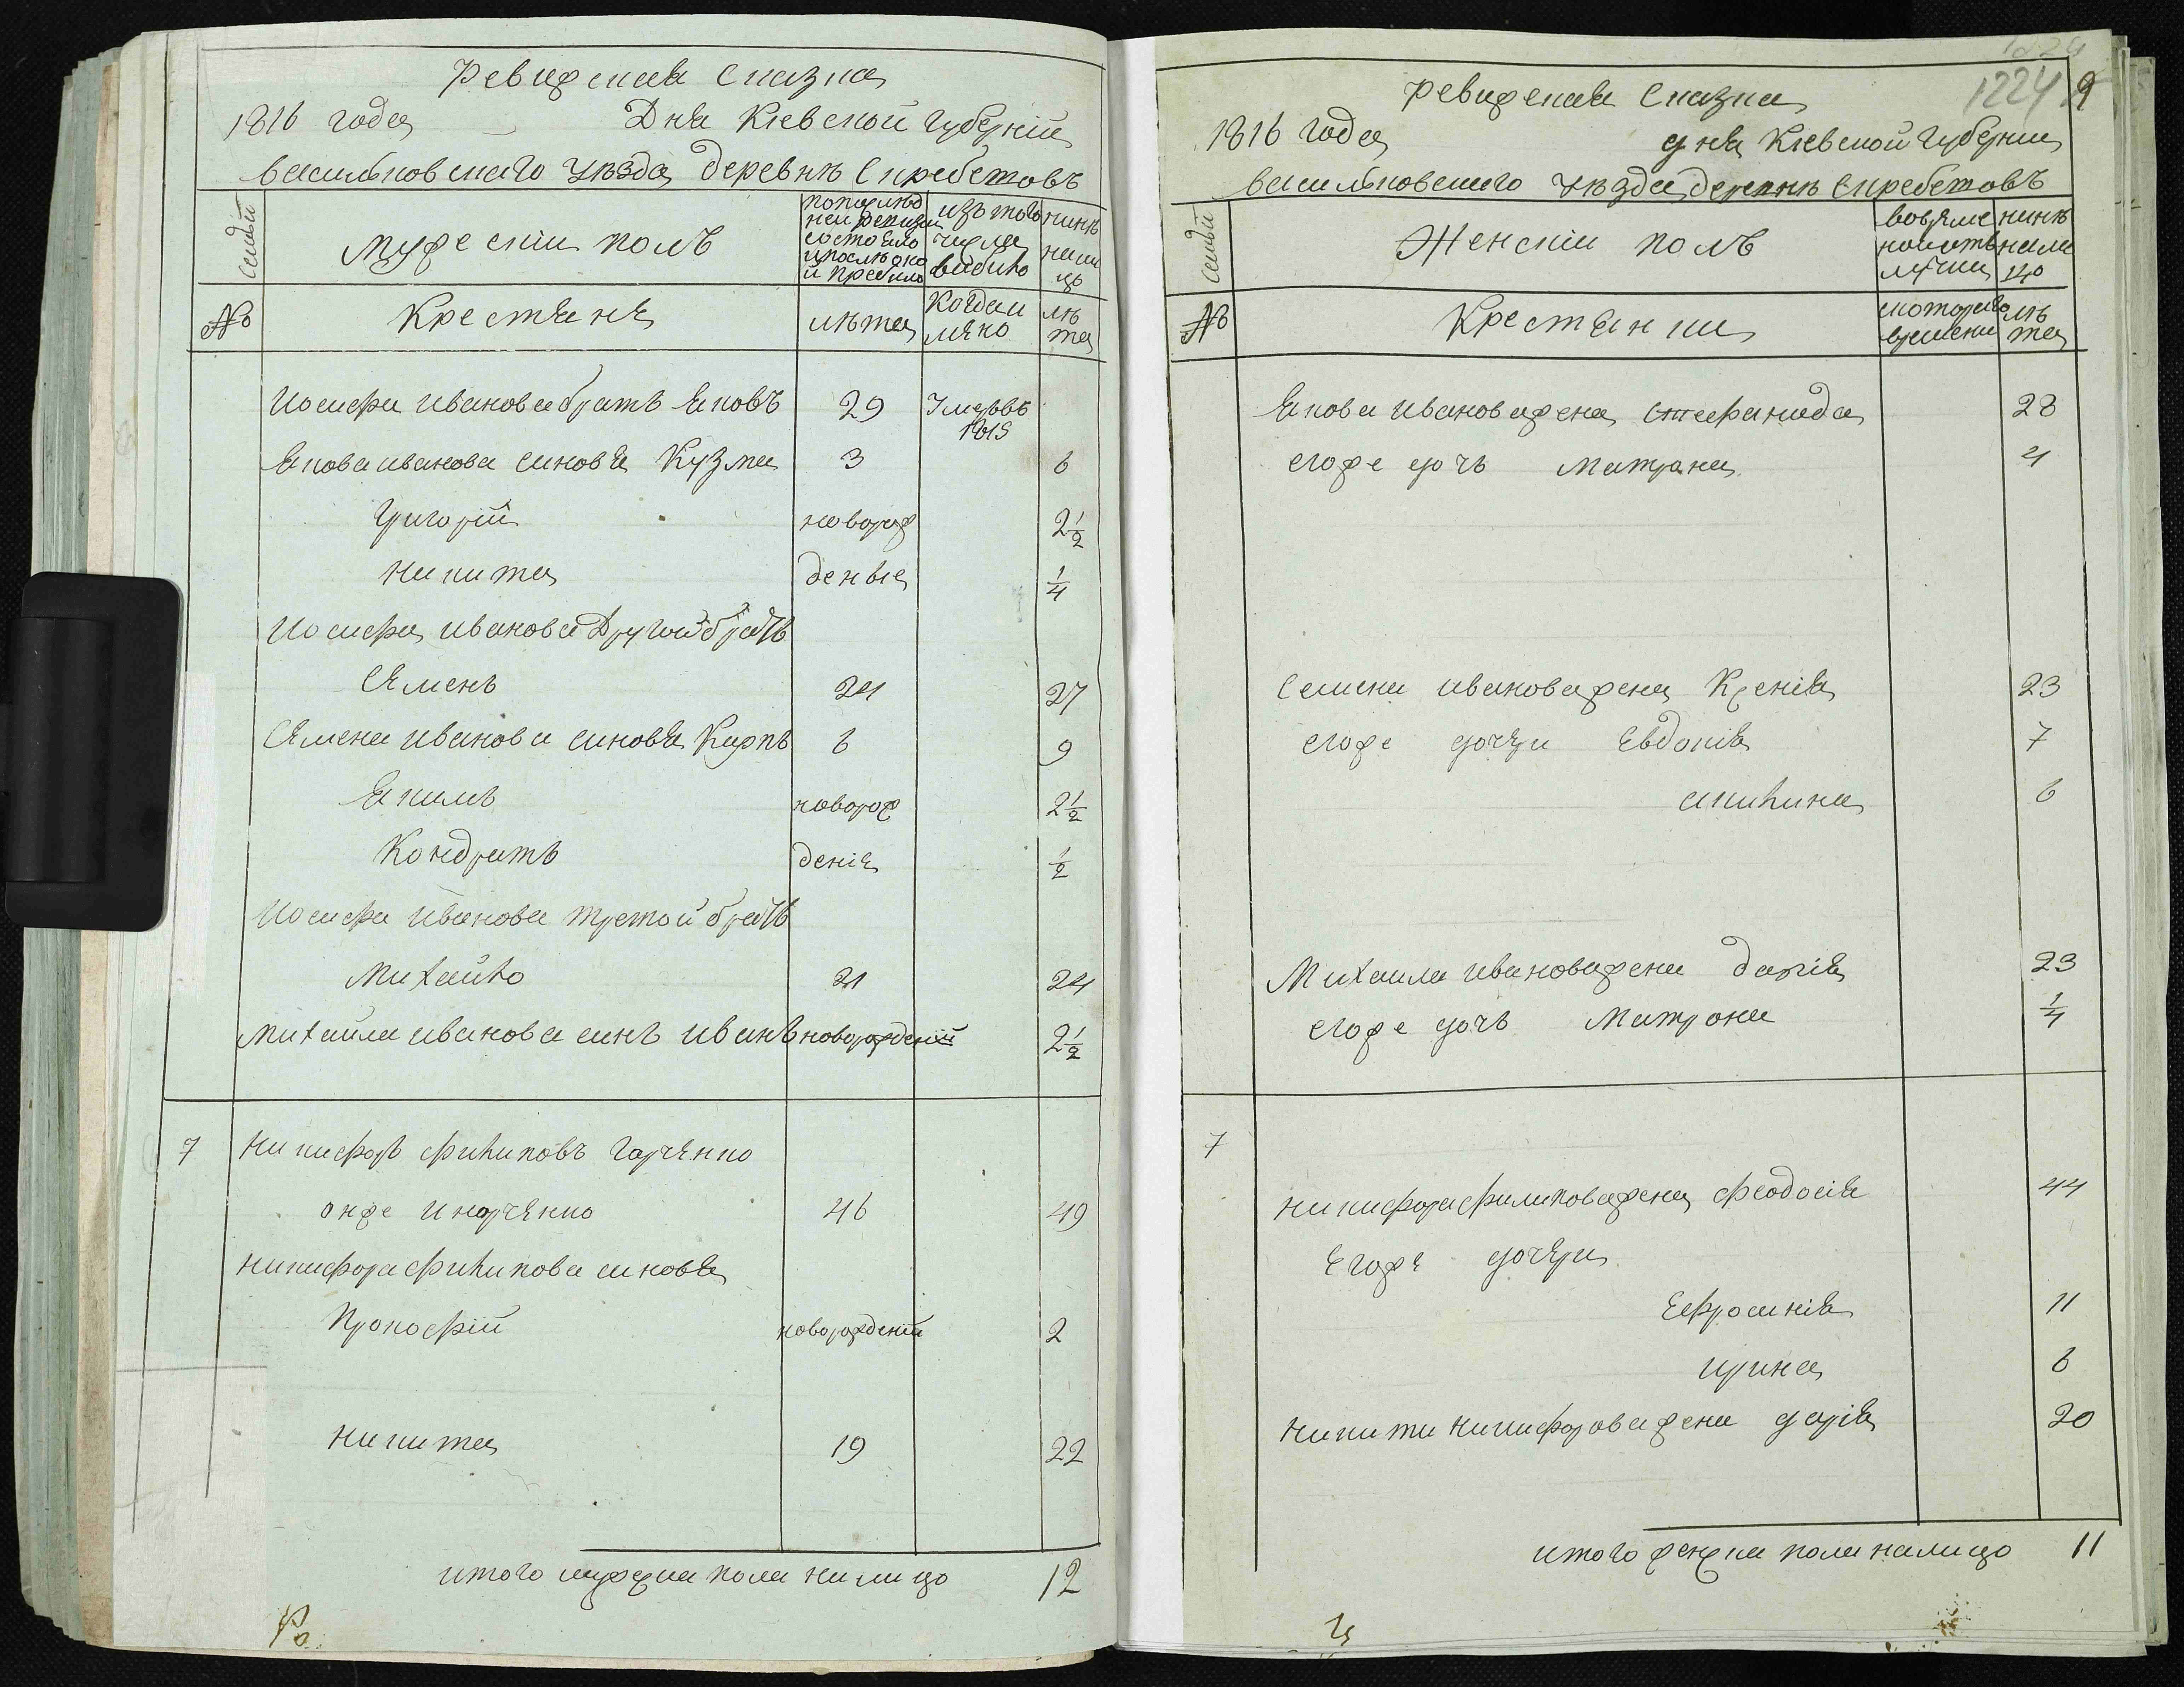 Ревизская Сказка
1816 года Дня Киевской губерніи
васильковскаго уѣзда деревнѣ Скребетовъ
семьи
Мужескій полъ
попослѣд
ней ревизіи
состояло
ипослѣ оно
й прибыло
изътого
числа
выбыло
нинѣ
нали
цо
№
Крестяне
лѣта
Когдаи
мяно
лѣ
та
Иосифа Иванова братъ Яковъ 29 Умеръвъ
1815
Якова иванова синовя Кузма 3 6
Григорій новорож 2 1/2
Никита деные 1/4
Иосифа иванова Другой братъ
Сяменъ 24 27
Сямена иванова синовя Карпъ 6 9
Якимъ новорож 2 1/2
Кондратъ денія 1/2
Иосифа иванова третой братъ
Михайло 21 24
Михайла иванова синъ иванъ новорожденій 2 1/2
7 Никифоръ филиповъ гарченко
онже инарченко 46 49
Никифора филипова синовя
Прокофій новорожденій 2
Никита 19 22
итого мужеска пола налицо 12
1224 9
ревизская Сказка
1816 года дня Киевской губернии
васильковского уѣзда деревнѣ Скребетовъ
семьи
Женскіи полъ
вовреме
ной отъ
лучки
нинѣ
нали
цо
№
Крестянки
скоторого
времени
лѣ
та
Якова Иванова жена стефанида 28
егоже дочъ матрана 4
Семена иванова жена Ксенія 23
егоже дочери Евдокія 7
акилина 6
Михаила иванова жена дария 23
егоже дочъ матрона 1/4
7
никифора филипова жена феодосія 44
Егоже дочери
Ефросинія 11
ирина 6
никити никифорова жена дарія 20
итого женска пола налицо 11